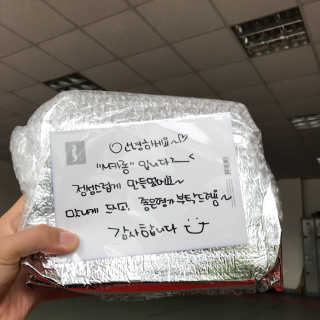 안녕하세요~♡
"사카롱" 입니다~
정성스럽게 만들었어요~
맛있게 드시고, 좋은평가 부탁드려용~
감사합니다